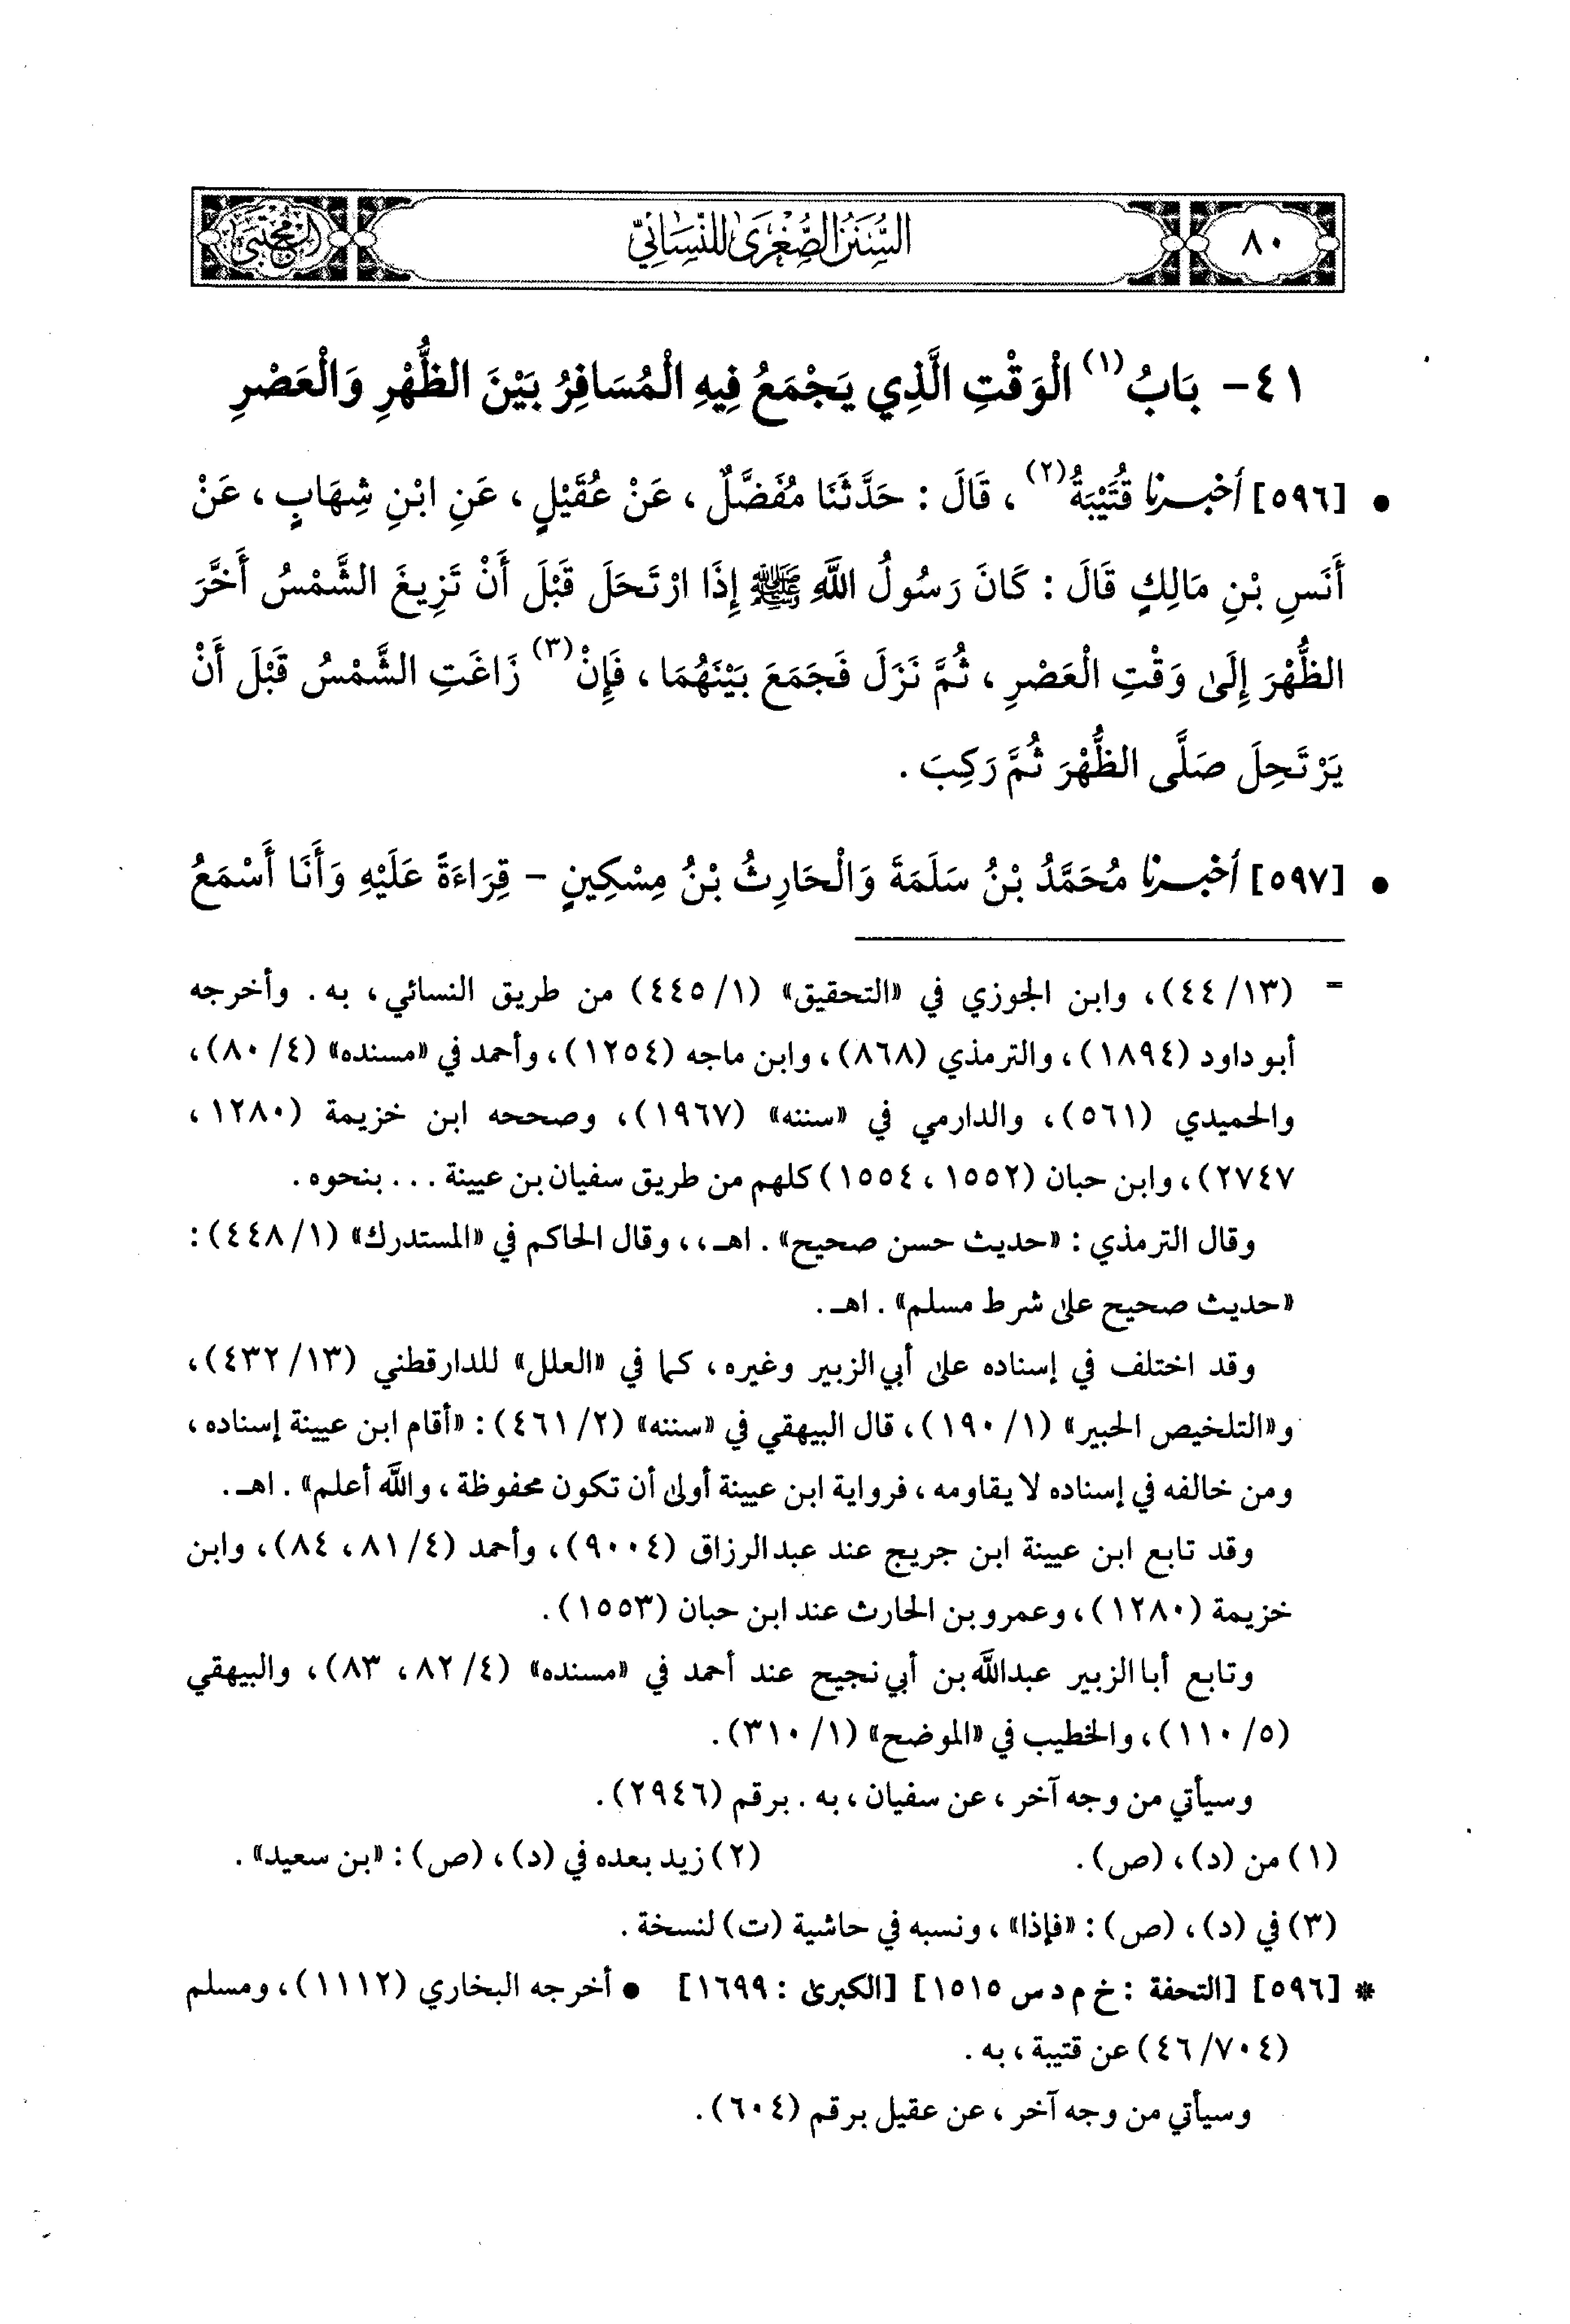 ٨٠
السُّنَنُ الصُّغْرَىٰ لِلنَّسَائِيِّ
المجتبى
٤١- بَابُ(١) الْوَقْتِ الَّذِي يَجْمَعُ فِيهِ الْمُسَافِرُ بَيْنَ الظُّهْرِ وَالْعَصْرِ
• [٥٩٦] أخبرنا قُتَيْبَةُ(٢)، قَالَ: حَدَّثَنَا مُفَضَّلٌ، عَنْ عُقَيْلٍ، عَنِ ابْنِ شِهَابٍ، عَنْ
أَنَسِ بْنِ مَالِكٍ قَالَ: كَانَ رَسُولُ اللَّهِ ﷺ إِذَا ارْتَحَلَ قَبْلَ أَنْ تَزِيغَ الشَّمْسُ أَخَّرَ
الظُّهْرَ إِلَىٰ وَقْتِ الْعَصْرِ، ثُمَّ نَزَلَ فَجَمَعَ بَيْنَهُمَا، فَإِنْ(٣) زَاغَتِ الشَّمْسُ قَبْلَ أَنْ
يَرْتَحِلَ صَلَّى الظُّهْرَ ثُمَّ رَكِبَ.
• [٥٩٧] أخبرنا مُحَمَّدُ بْنُ سَلَمَةَ وَالْحَارِثُ بْنُ مِسْكِينٍ - قِرَاءَةً عَلَيْهِ وَأَنَا أَسْمَعُ
= (١٣/ ٤٤)، وابن الجوزي في «التحقيق» (١/ ٤٤٥) من طريق النسائي، به. وأخرجه
أبو داود (١٨٩٤)، والترمذي (٨٦٨)، وابن ماجه (١٢٥٤)، وأحمد في «مسنده» (٤/ ٨٠)،
والحميدي (٥٦١)، والدارمي في «سننه» (١٩٦٧)، وصححه ابن خزيمة (١٢٨٠،
٢٧٤٧)، وابن حبان (١٥٥٢، ١٥٥٤) كلهم من طريق سفيان بن عيينة... بنحوه.
وقال الترمذي: «حديث حسن صحيح». اهـ.،، وقال الحاكم في «المستدرك» (١/ ٤٤٨):
«حديث صحيح علىٰ شرط مسلم». اهـ.
وقد اختلف في إسناده علىٰ أبي الزبير وغيره، كما في «العلل» للدارقطني (١٣/ ٤٣٢)،
و«التلخيص الحبير» (١/ ١٩٠)، قال البيهقي في «سننه» (٢/ ٤٦١): «أقام ابن عيينة إسناده،
ومن خالفه في إسناده لا يقاومه، فرواية ابن عيينة أولىٰ أن تكون محفوظة، واللَّه أعلم». اهـ.
وقد تابع ابن عيينة ابن جريج عند عبدالرزاق (٩٠٠٤)، وأحمد (٤/ ٨١، ٨٤)، وابن
خزيمة (١٢٨٠)، وعمرو بن الحارث عند ابن حبان (١٥٥٣).
وتابع أبا الزبير عبداللَّه بن أبي نجيح عند أحمد في «مسنده» (٤/ ٨٢، ٨٣)، والبيهقي
(٥/ ١١٠)، والخطيب في «الموضح» (١/ ٣١٠).
وسيأتي من وجه آخر، عن سفيان، به. برقم (٢٩٤٦).
(١) من (د)، (ص). (٢) زيد بعده في (د)، (ص): «بن سعيد».
(٣) في (د)، (ص): «فإذا»، ونسبه في حاشية (ت) لنسخة.
* [٥٩٦] [التحفة: خ م د س ١٥١٥] [الكبرىٰ: ١٦٩٩] • أخرجه البخاري (١١١٢)، ومسلم
(٧٠٤/ ٤٦) عن قتيبة، به.
وسيأتي من وجه آخر، عن عقيل برقم (٦٠٤).